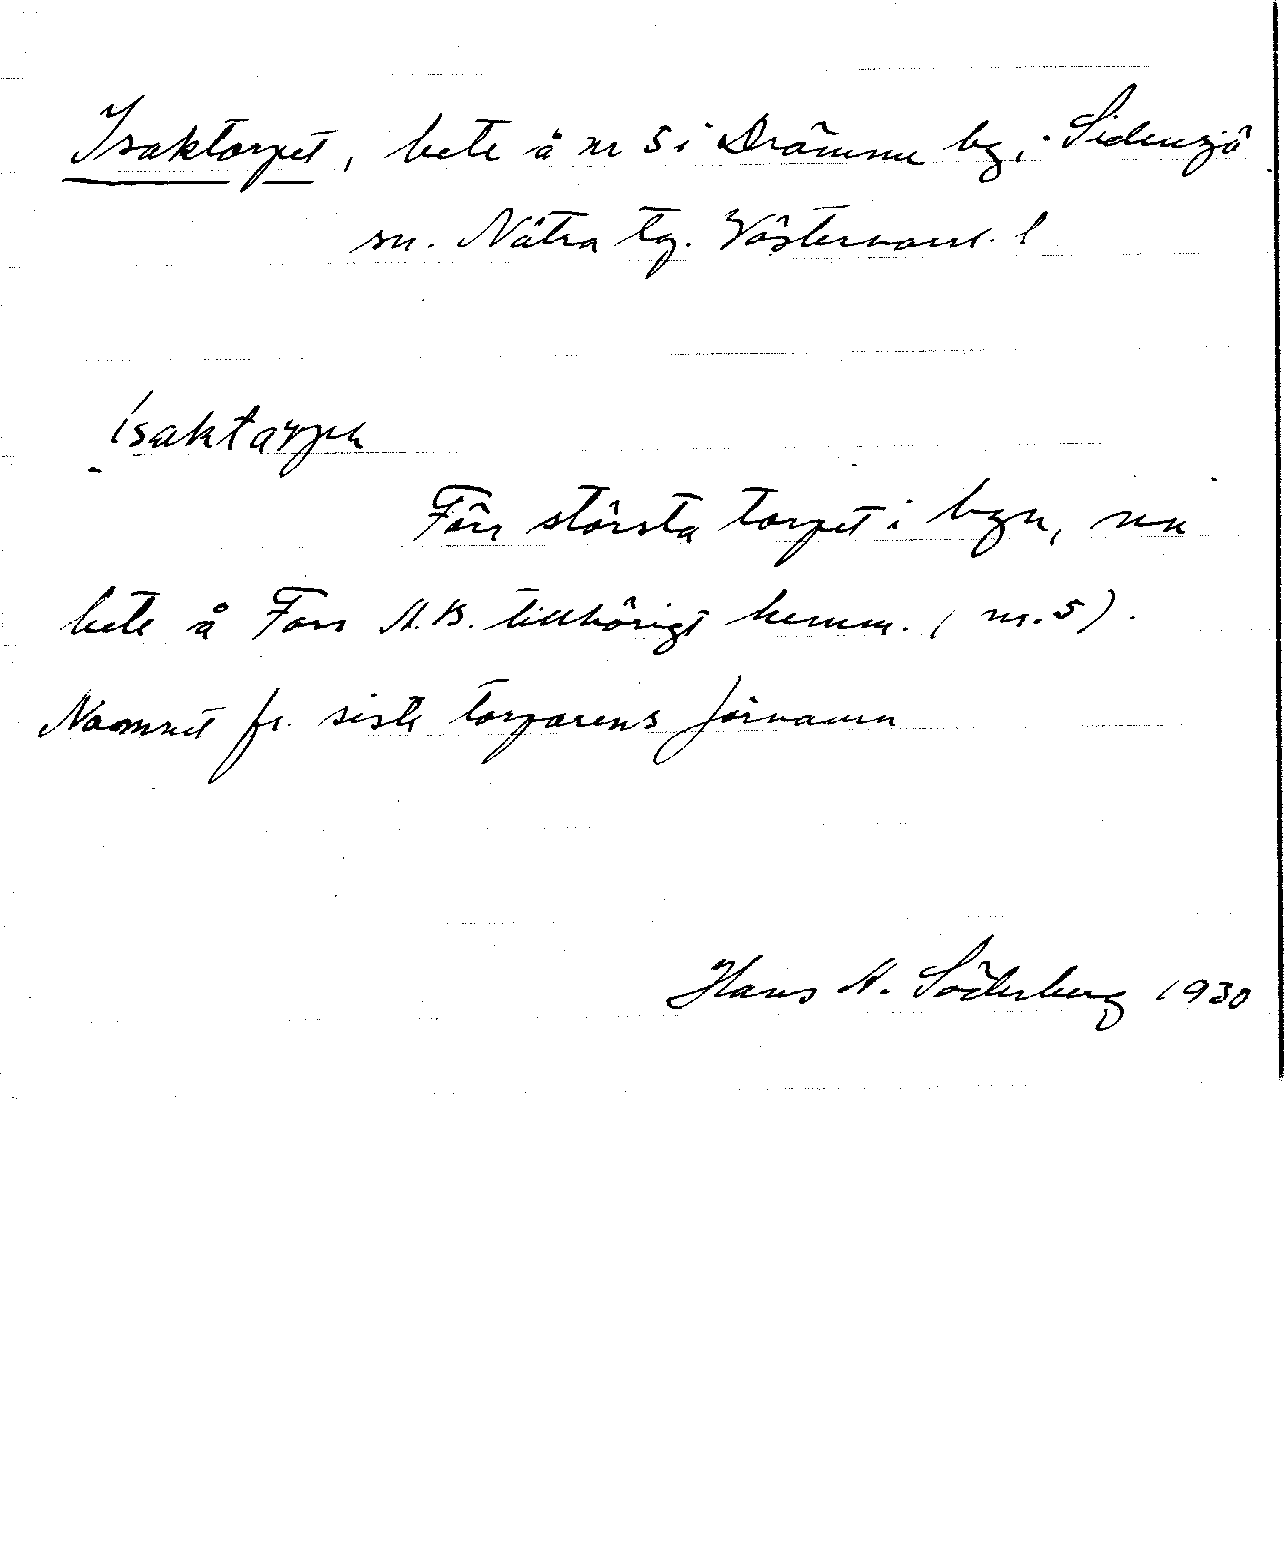 Isaktorpet, bete å nr 5 i Drämme by, Sidensjö
sn. Nätra tg. Västernorrl. l
Isaktarpe
Förr största torpet i byn, nu
bete å Fors A.B. tillhörigt hemm. (nr. 5).
Namnet fr. siste torparens förnamn
Hans A. Söderberg 1930